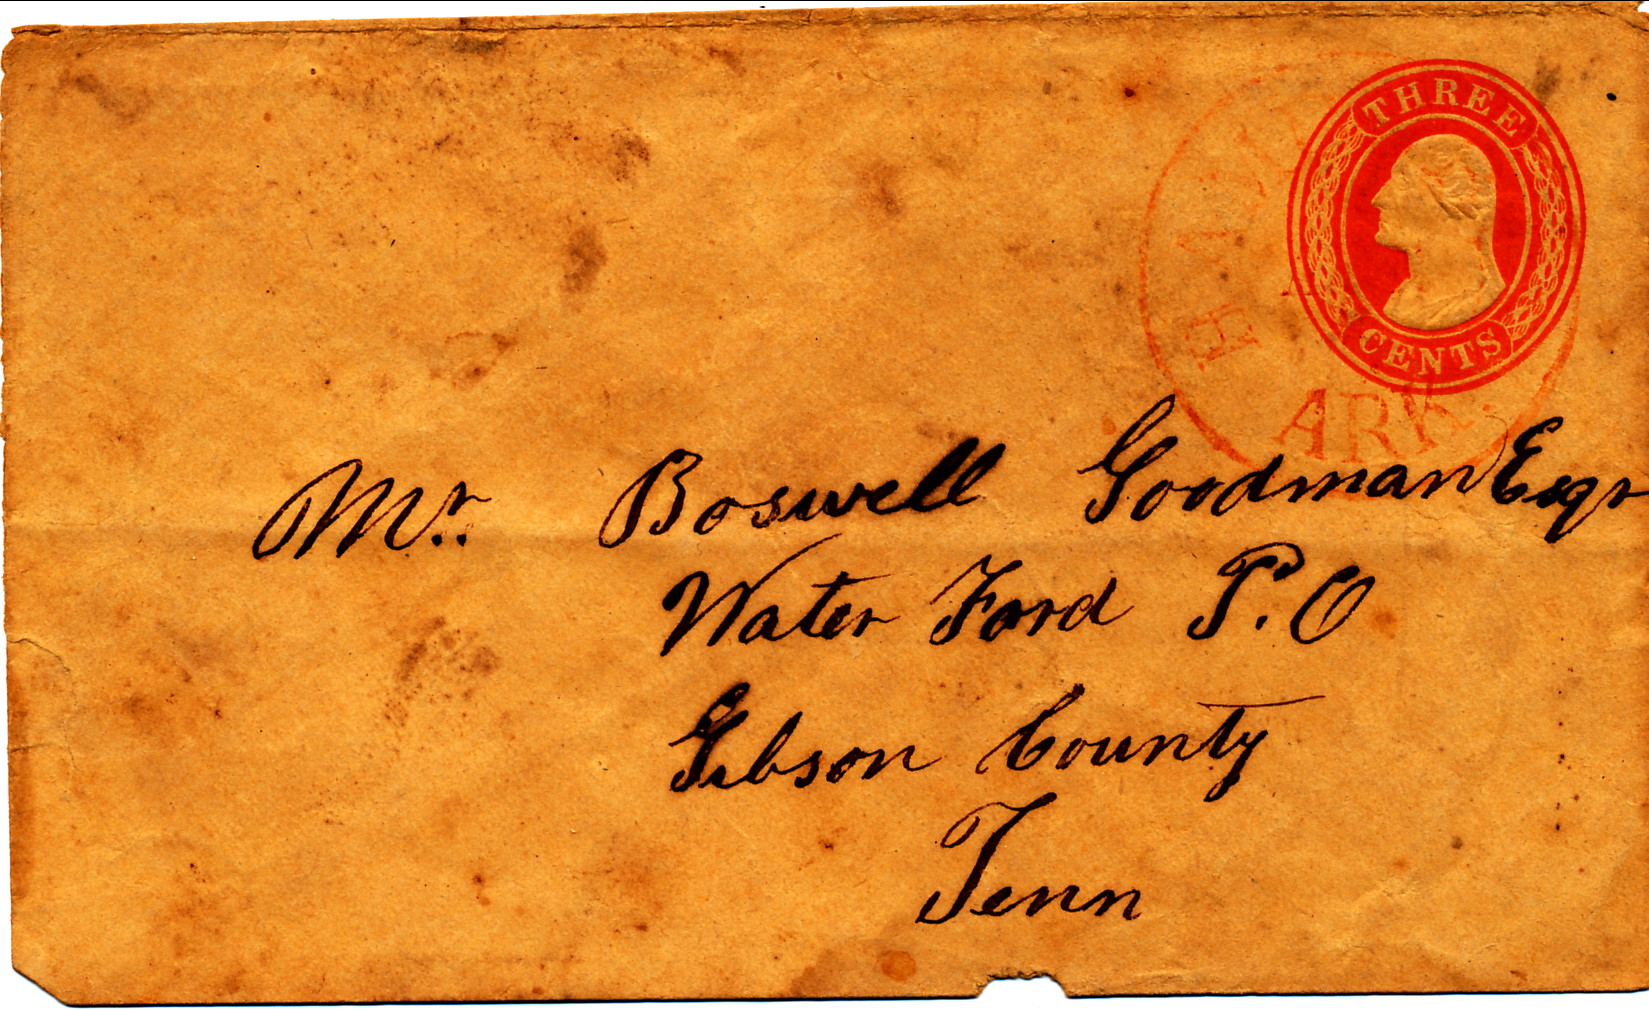 THREE
CENTS
ARKS
Mr. Boswell Goodman Esqr
Water Ford P.O
Gibson County
Tenn